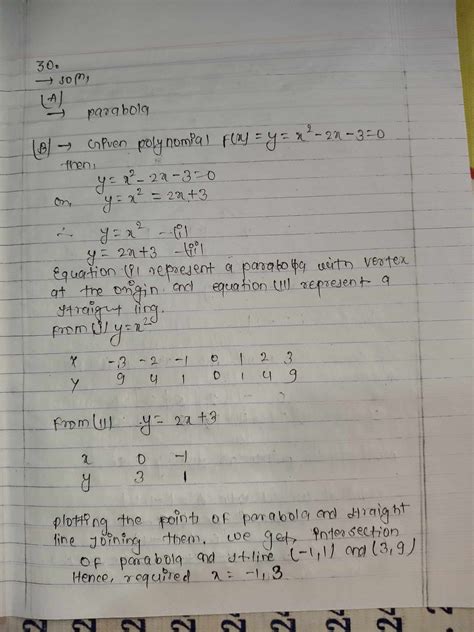 30.
→ Soln,
(A)
→ parabola
(B) → Given polynomial f(x) = y = x² - 2x - 3 = 0
then,
y = x² - 2x - 3 = 0
or, y = x² = 2x + 3
∴ y = x² - (i)
y = 2x + 3 - (ii)
Equation (i) represent a parabola with vertex
at the origin and equation (ii) represent a
straight line.
From (i) y = x²
x -3 -2 -1 0 1 2 3
y 9 4 1 0 1 4 9
From (ii) y = 2x + 3
x 0 -1
y 3 1
plotting the points of parabola and straight
line joining them. We get, intersection
of parabola and st-line (-1,1) and (3,9)
Hence, required x = -1, 3